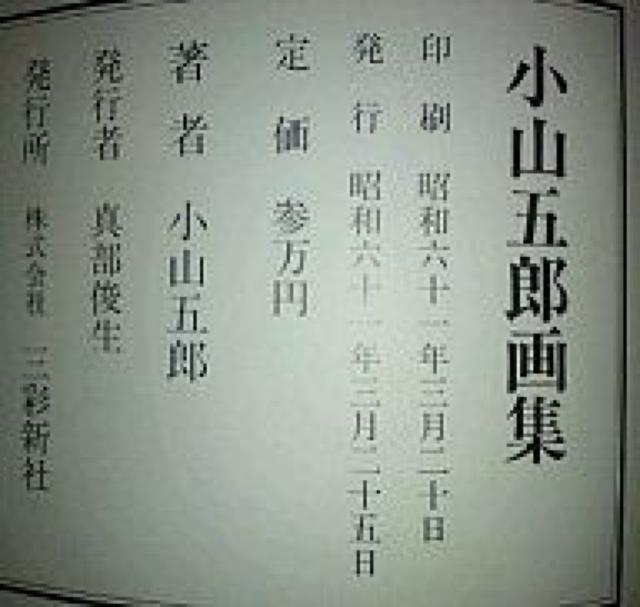 小山五郎画集
印刷 昭和六十一年三月二十日
発行 昭和六十一年三月二十五日
定価 参万円
著者 小山五郎
発行者 真部俊生
発行所 株式会社 三彩新社